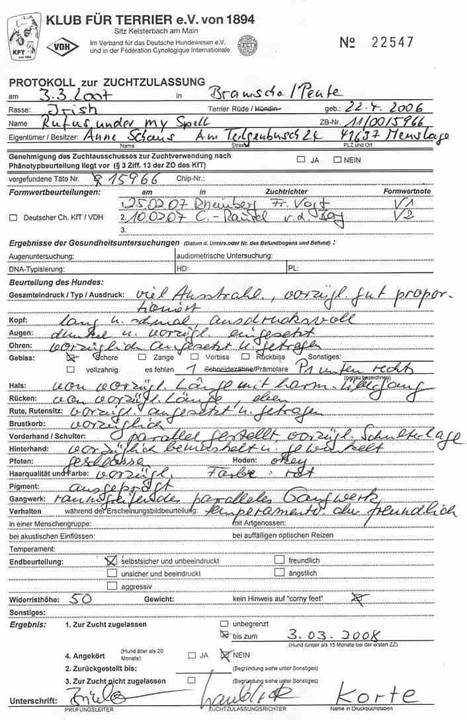 KLUB FÜR TERRIER e.V. von 1894
Sitz Kelsterbach am Main
Im Verband für das Deutsche Hundewesen e.V.
und in der Fédération Cynologique Internationale
KFT
VDH
№ 22547
PROTOKOLL zur ZUCHTZULASSUNG
am 3.3.2007 in Bramsche/Pente
Rasse: Irish Terrier Rüde / Hündin geb.: 22.4.2006
Name: Rufus under my Spell ZB-Nr. 11/0015966
Eigentümer / Besitzer: Anne Schaus Am 49637 Menslage
Name Straße PLZ und Ort
Genehmigung des Zuchtausschusses zur Zuchtverwendung nach
Phänotypbeurteilung liegt vor (§ 3 Ziff. 13 der ZO des KfT) JA NEIN
vorgefundene Täto Nr. R 15966 Chip-Nr.:
Formwertbeurteilungen: am in Zuchtrichter Formwertnote
1. 25.02.07 Rheinberg Fr. Vogt V1
Deutscher Ch. KfT / VDH 2. 10.02.07 C.-Rauxel v.d. V2
3.
Ergebnisse der Gesundheitsuntersuchungen (Datum d. Unters. oder Nr. des Befundbogens und Befund):
Augenuntersuchung: audiometrische Untersuchung:
DNA-Typisierung: HD: PL:
Beurteilung des Hundes:
Gesamteindruck / Typ / Ausdruck: viel Ausstrahl., vorzügl. gut propor-
tioniert
Kopf: lang u. schmal ausdrucksvoll
Augen: dunkel u. vorzügl. eingesetzt
Ohren: vorzüglich angesetzt u. getragen
Gebiss: Schere Zange Vorbiss Rückbiss Sonstiges:
vollzahnig es fehlen 1 Schneidezähne/Prämolare P1 unten recht
Hals: von vorzügl. Länge mit harm. Übergang
Rücken: von vorzügl. Länge, eben
Rute, Rutensitz: vorzügl. angesetzt u. getragen
Brustkorb: vorzüglich
Vorderhand / Schulter: parallel gestellt, vorzügl. Schulterlage
Hinterhand: vorzüglich bemuskelt u. gewinkelt
Pfoten: geschlossen Hoden: okay
Haarqualität und Farbe: vorzügl. Farbe: rot
Pigment: ausgeprägt
Gangwerk: raumgreifendes paralleles Gangwerk
Verhalten während der Erscheinungsbildbeurteilung: temperamentv. freundlich
in einer Menschengruppe: mit Artgenossen:
bei akustischen Einflüssen: bei auffälligen optischen Reizen:
Temperament:
Endbeurteilung: selbstsicher und unbeeindruckt freundlich
unsicher und beeindruckt ängstlich
aggressiv
Widerristhöhe: 50 Gewicht: kein Hinweis auf "corny feet"
Sonstiges:
Ergebnis: 1. Zur Zucht zugelassen unbegrenzt
bis zum 3.03.2008
(Hund jünger als 15 Monate bei der ersten ZZ)
4. Angekört (Hund älter als 20 Monate) JA NEIN
2. Zurückgestellt bis: (Begründung siehe unter Sonstiges)
3. Zur Zucht nicht zugelassen (Begründung siehe unter Sonstiges)
Unterschrift: Korte
PRÜFUNGSLEITER ZUCHTZULASSUNGSRICHTER Name in Druckbuchstaben